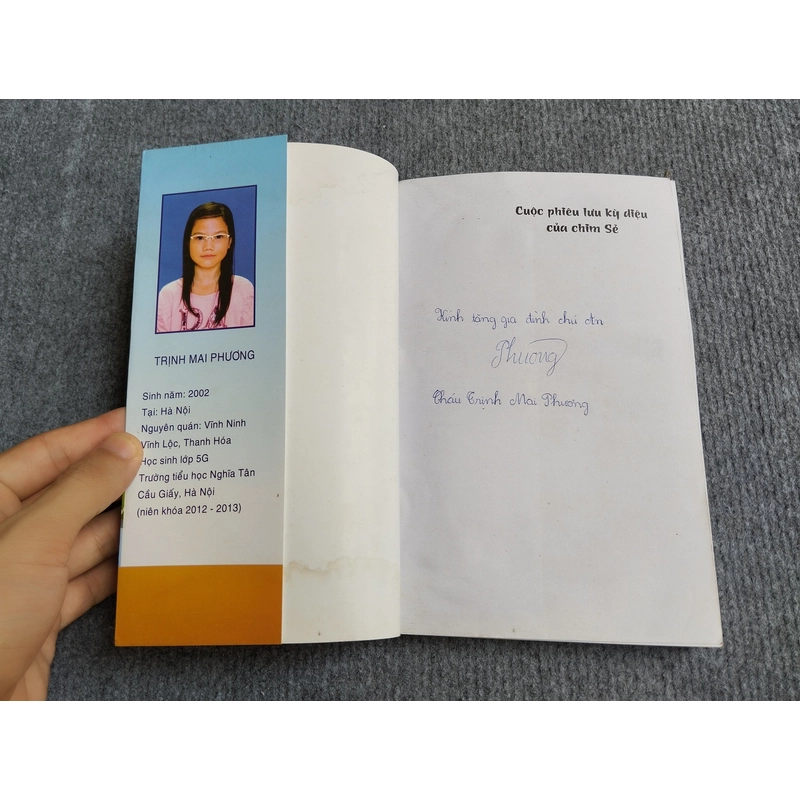 TRỊNH MAI PHƯƠNG
Sinh năm: 2002
Tại: Hà Nội
Nguyên quán: Vĩnh Ninh
Vĩnh Lộc, Thanh Hóa
Học sinh lớp 5G
Trường tiểu học Nghĩa Tân
Cầu Giấy, Hà Nội
(niên khóa 2012 - 2013)
Cuộc phiêu lưu kỳ diệu
của chim Sẻ
Kính tặng gia đình chú An
Phương
Cháu Trịnh Mai Phương